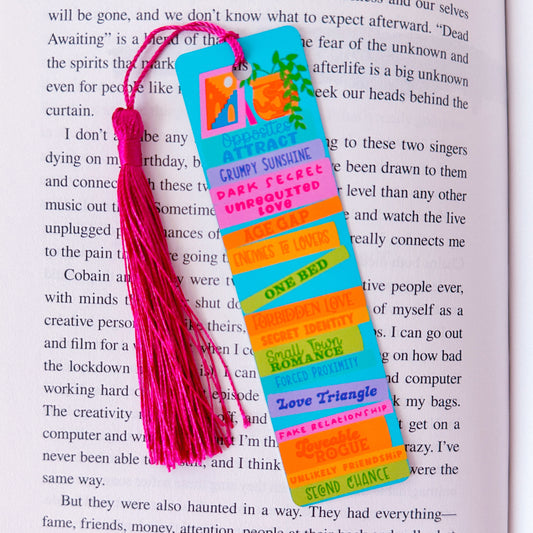 and our selves
will be gone, and we don't know what to expect afterward. "Dead
Awaiting" is a blend of the fear of the unknown and
the spirits that afterlife is a big unknown
even for people like seek our heads behind the
curtain.
I don't be any to these two singers
dying on my birthday, been drawn to them
and connect with these two level than any other
music out Sometime and watch the live
unplugged really connects me
to the pain they going
Cobain and were tive people ever,
with minds shut do of myself as a
creative person like theirs, I can go out
and film for a when I on how bad
the lockdown I can and computer
working hard episode my bags.
The creativity off, and get on a
computer and I'm crazy. I've
never been able to and I think were the
same way.
But they were also haunted in a way. They had everything—
fame, friends, money, attention, people
Opposites
ATTRACT
GRUMPY SUNSHINE
DARK SECRET
UNREQUITED
LOVE
AGE GAP
ENEMIES TO LOVERS
ONE BED
FORBIDDEN LOVE
SECRET IDENTITY
Small Town
ROMANCE
FORCED PROXIMITY
Love Triangle
FAKE RELATIONSHIP
Loveable
ROGUE
UNLIKELY FRIENDSHIP
SECOND CHANCE